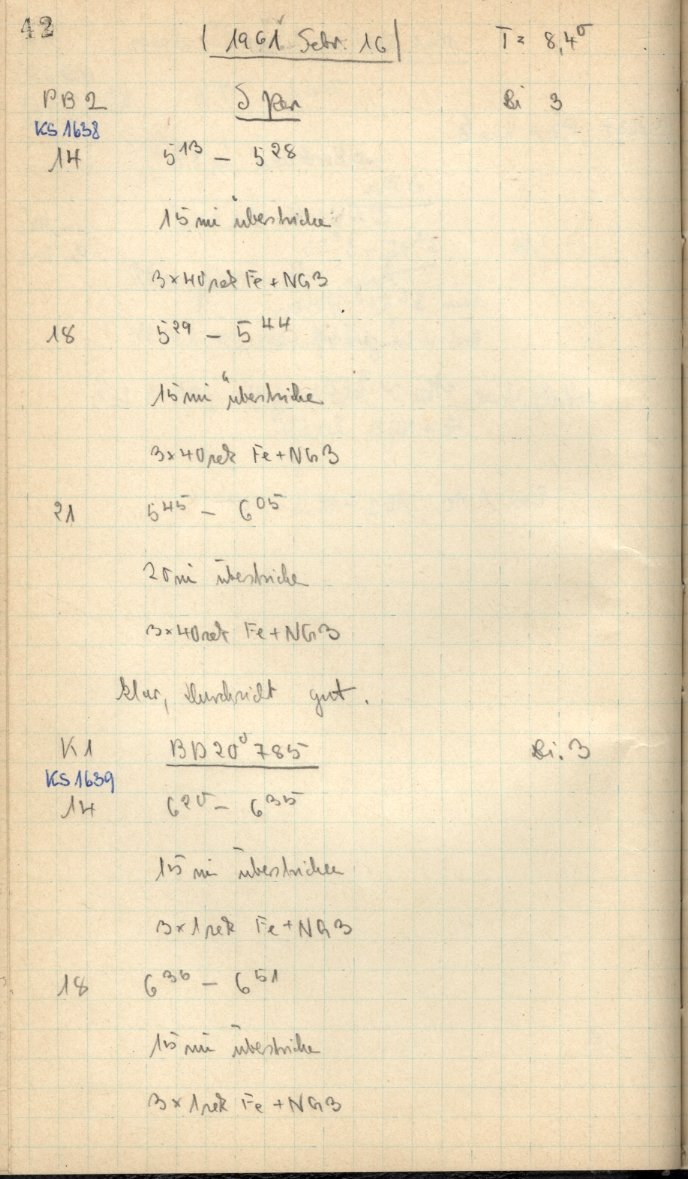 42
1961 Febr. 16 T = 8,4°
PB2 δ Per Bi 3
KS 1638
14 5¹³ – 5²⁸
15 mi überstrichen
3×40 sek Fe+NG3
18 5²⁹ – 5⁴⁴
15 mi überstrichen
3×40 sek Fe+NG3
21 5⁴⁵ – 6⁰⁵
20 mi überstrichen
3×40 sek Fe+NG3
klar, Durchsicht gut.
K1 BD 20° 785 Bi. 3
KS 1639
14 6²⁰ – 6³⁵
15 mi überstrichen
3×1 sek Fe+NG3
18 6³⁶ – 6⁵¹
15 mi überstrichen
3×1 sek Fe+NG3